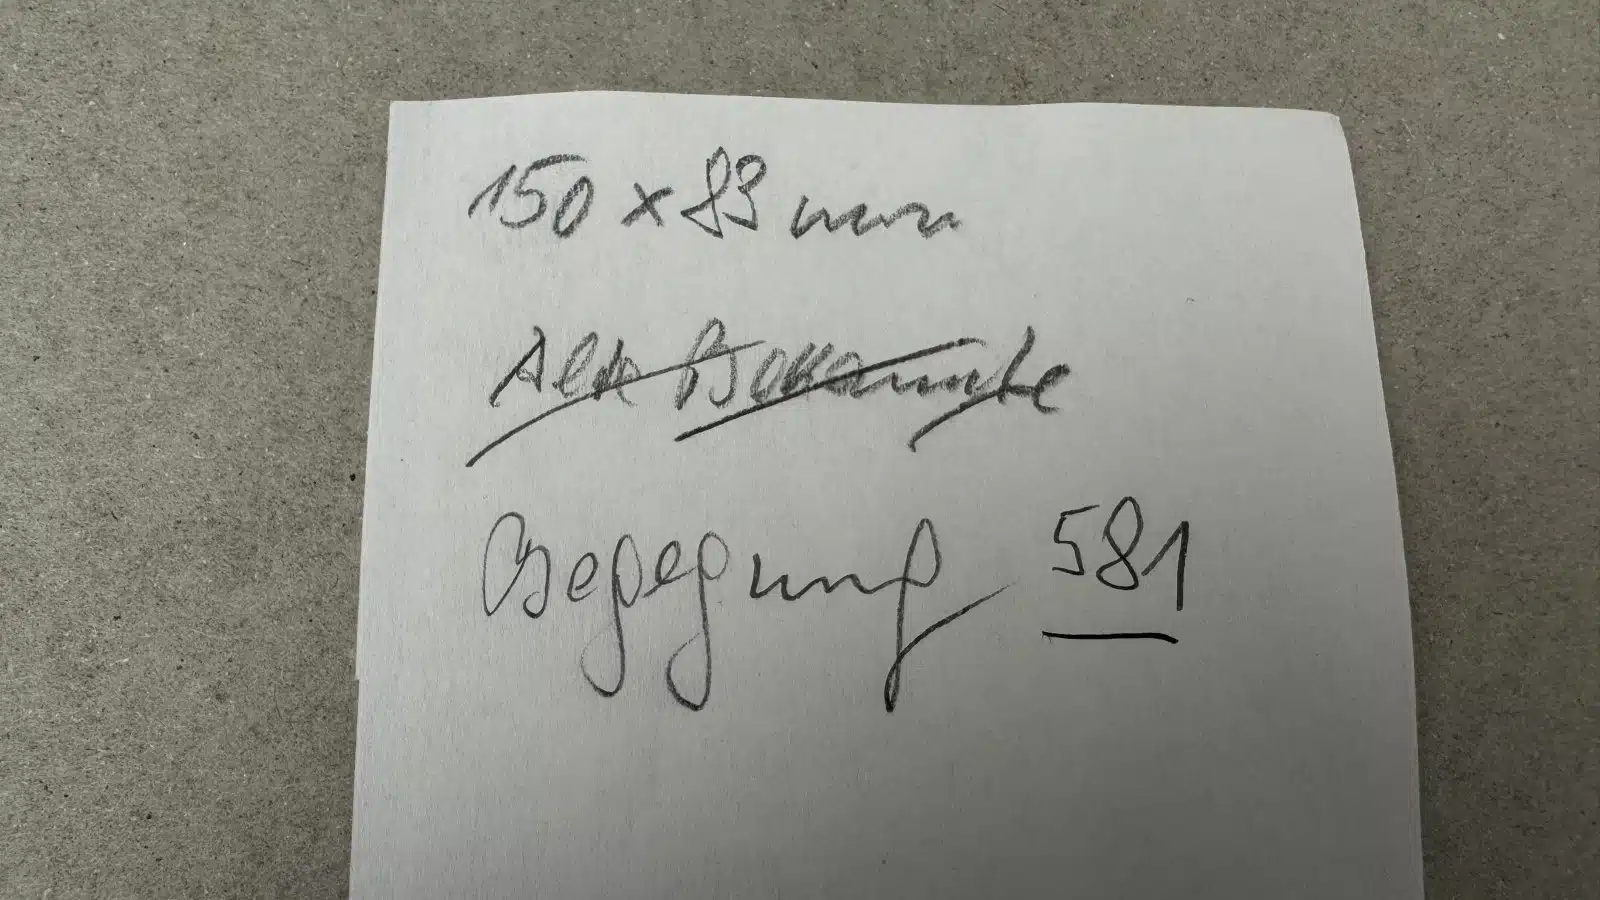 150 x 83 mm
Alte Bekannte
Begegnung 581